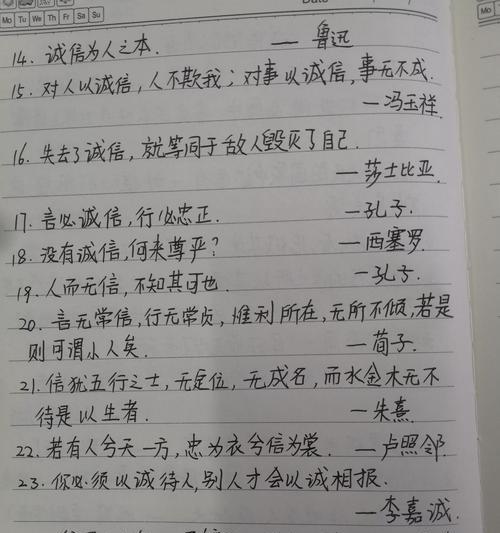 Date
Mo Tu We Th Fr Sa Su
Mo
14. 诚信为人之本. — 鲁迅
15. 对人以诚信,人不欺我;对事以诚信,事无不成.
—冯玉祥.
16. 失去了诚信,就等同于敌人毁灭了自己.
—莎士比亚.
17. 言必诚信,行必忠正. —孔子.
18. 没有诚信,何来尊严? —西塞罗.
19. 人而无信,不知其可也. —孔子.
20. 言无常信,行无常贞,惟利所在,无所不倾,若是
则可谓小人矣. —荀子.
21. 信犹五行之土,无定位,无成名,而水金木无不
待是以生者. —朱熹.
22. 若有人兮天一方,忠为衣兮信为裳. —卢照邻.
23. 你必须以诚待人,别人才会以诚相报.
—李嘉诚.